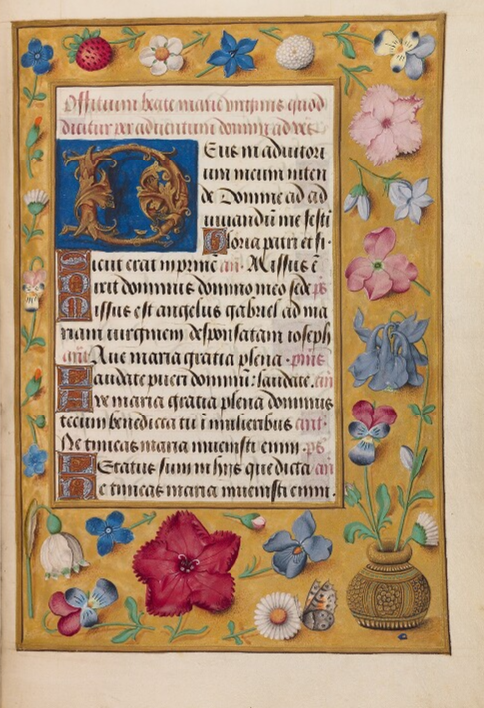 Offitium beate marie virginis quod
dicitur per adventum domini ad ves
Deus in adiutori
um meum inten
de Domine ad ad
iuuandū me festi
Gloria patri et fi·
Sicut erat in prīnc̄ an̄· Missus ē
Dixit dominus domino meo sede ps
Missus est angelus gabriel ad ma
riam uirginem desponsatam ioseph
an̄ Aue maria gratia plena ·
Laudate pueri dominū: laudate· an̄
Aue maria gratia plena dominus
tecum benedicta tu ī mulieribus ant·
Ne timeas maria inuenisti enim· ps
Letatus sum in hijs que dicta an̄
Ne timeas maria inuenisti enim·